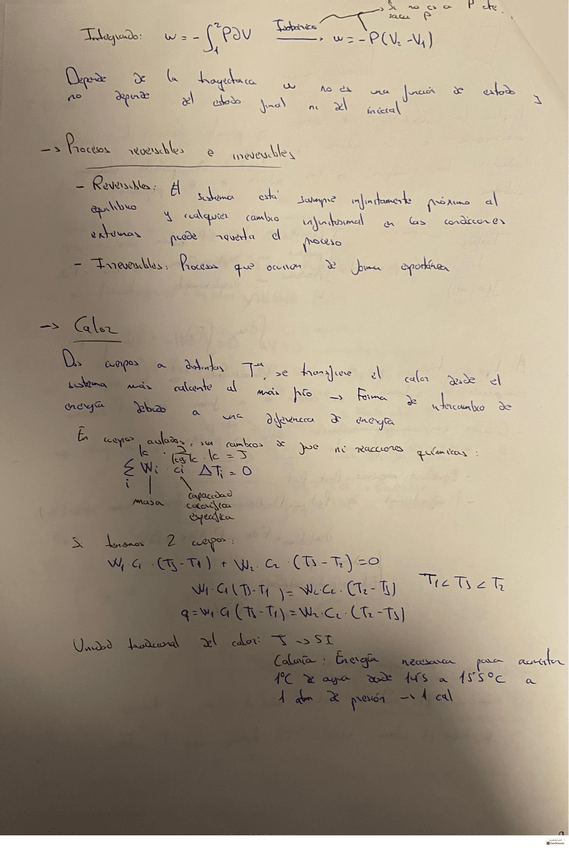 Si no es a P cte.
sacar P
Integrado: w = -∫₁² P∂V Isobárico → w = -P(V₂-V₁)
Depende de la trayectoria w no es una función de estado y
no depende del estado final ni del inicial
→ Procesos reversibles e irreversibles
- Reversibles: El sistema está siempre infinitamente próximo al
equilibrio y cualquier cambio infinitesimal en las condiciones
externas puede revertir el proceso
- Irreversibles: Procesos que ocurren de forma espontánea
→ Calor
Dos cuerpos a distintas Tª, se transfiere el calor desde el
sistema más caliente al más frío → Forma de intercambio de
energía debido a una diferencia de energía
En cuerpos aislados, sin cambios de fase ni reacciones químicas:
K = J
Σ Wi ci ΔTi = 0
i
masa
capacidad
calorífica
específica
Si tenemos 2 cuerpos:
W₁ C₁ · (T₃-T₁) + W₂ · C₂ · (T₃-T₂) = 0
W₁ · C₁ (T₃-T₁) = W₂ · C₂ · (T₂-T₃) T₁ < T₃ < T₂
q = W₁ · C₁ (T₃-T₁) = W₂ · C₂ · (T₂-T₃)
Unidad tradicional del calor: J → SI
Caloría: Energía necesaria para aumentar
1°C de agua desde 14'5 a 15'5°C a
1 atm de presión → 1 cal